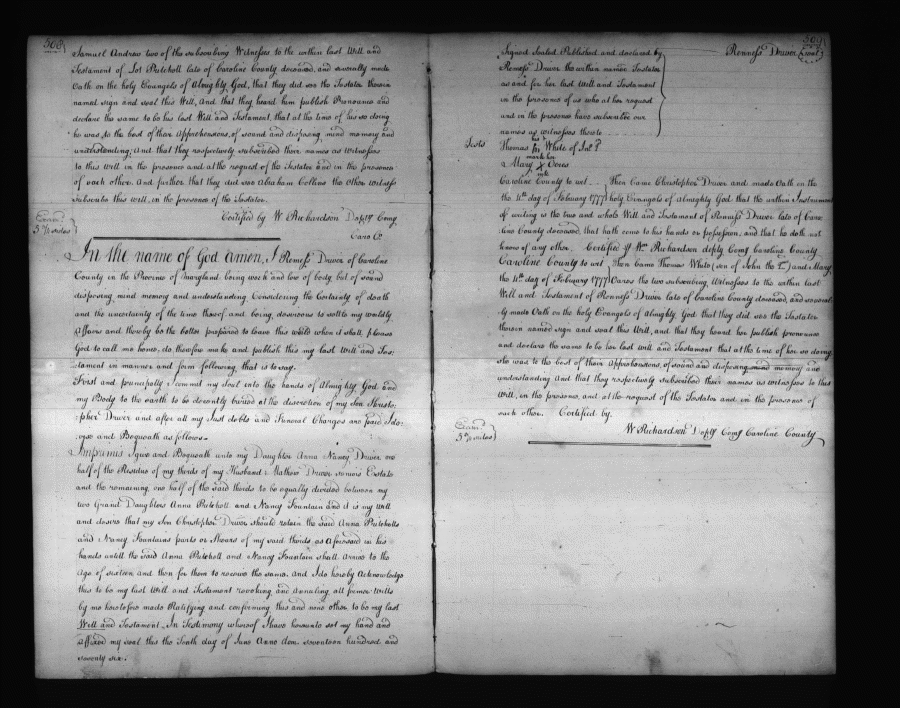 508
Samuel Andrew two of the subscribing Witnesses to the within last Will and
Testament of Lot Pritchett late of Caroline County deceased, and severally made
Oath on the holy Evangels of Almighty God, that they did see the Testator therein
named sign and seal this Will, And that they heard him publish Pronounce and
declare the same to be his last Will and Testament, that at the time of his so doing
he was to the best of their Apprehensions, of sound and disposing mind memory and
understanding; And that they respectively subscribed their names as Witnesses
to this will in the presence and at the request of the Testator and in the presence
of each other. And further that they did see Abraham Collins the other witness
subscribe this will in the presence of the Testator.
Certified by W Richardson Depty Comy
Caro Co
Exam
3 7/8 sides
In the name of God Amen, I Reness Driver of Caroline
County in the Province of Maryland being weak and low of body but of sound
disposing mind memory and understanding Considering the Certainty of death
and the uncertainty of the time thereof and being desireous to settle my worldly
Affairs and thereby be the better prepared to leave this world when it shall please
God to call me hence, do therefore make and publish this my last Will and Tes:
tament in manner and form following that is to say.
First and principally I commit my soul into the hands of Almighty God and
my Body to the earth to be decently buried at the discretion of my Son Christo:
pher Driver and after all my Just debts and Funeral Charges are paid I de:
vise and Bequeath as follows.
Imprimis I give and Bequeath unto my Daughter Anna Nancy Driver one
half of the Residue of my thirds of my Husband Mathew Driver seniors Eastate
and the remaining one half of the said thirds to be equally divided between my
two Grand Daughters Anna Pritchett and Nancy Fountain and it is my will
and desire that my Son Christopher Driver should retain the said Anna Pritchetts
and Nancy Fountains parts or Shears of my said thirds as aforesaid in his
hands untill the said Anna Pritchett and Nancy Fountain shall arrive to the
Age of sixteen and then for them to receive the same. and I do hereby Acknowledge
this to be my last Will and Testament revoking and annuling all former Wills
by me heretofore made Ratifying and confirming this and none other to be my last
Will and Testament. In Testimony whereof I have hereunto set my hand and
affixed my seal this the Tenth day of June Anno dom seventeen hundred and
seventy six.
509
Signed Sealed Published and declared by
Reness Driver the within named Testator
as and for her last Will and Testament
in the presence of us who at her request
and in the presence have subscribe our
names as witness thereto
Renness Driver (seal)
Tests
Thomas his White of Jno
Mary her Oeres
mark
Caroline County to wit Then came Christopher Driver and made Oath on the
the 4th day of February 1777 holy Evangels of almighty God that the within Instrument
of writing is the true and whole Will and Testament of Renness Driver late of Caro:
line County deceased, that hath come to his hands or possession, and that he doth not
know of any other. Certified p Wm Richardson depty Comy Caroline County
Caroline County to wit Then Came Thomas White (son of John the 2d) and Mary
the 4th day of February 1777 Oeres the two subscribing Witnesses to the within last
Will and Testament of Renness Driver late of Caroline County deceased, and several:
ly made Oath on the holy Evangels of Almighty God that they did see the Testator
therein named sign and seal this Will, and that they heard her publish pronounce
and declare the same to be her last will and Testament that at the time of her so doing
she was to the best of their Apprehensions, of sound and disposing mind memory and
understanding And that they respectively subscribed their names as witnesses to this
Will, in the presence, and at the request of the Testator and in the presence of
each other. Certified by.
W Richardson Depty Comy Caroline County
Exam
3 7/8 sides